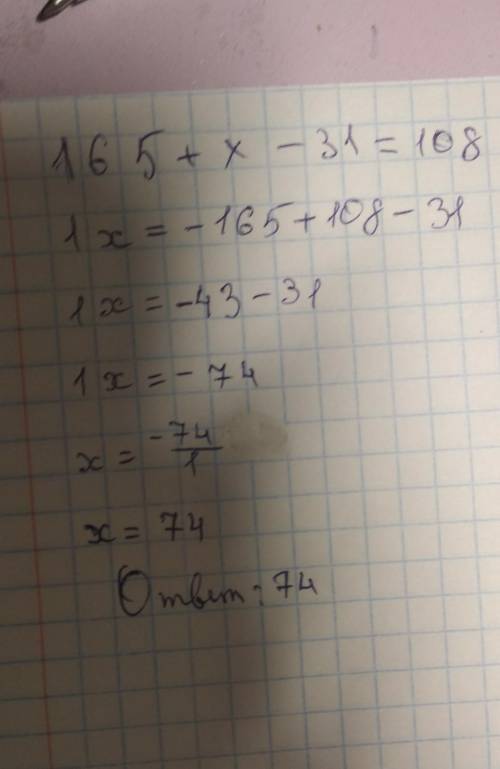 165 + x - 31 = 108
1x = -165 + 108 - 31
1x = -43 - 31
1x = -74
x = -74/1
x = 74
Ответ: 74